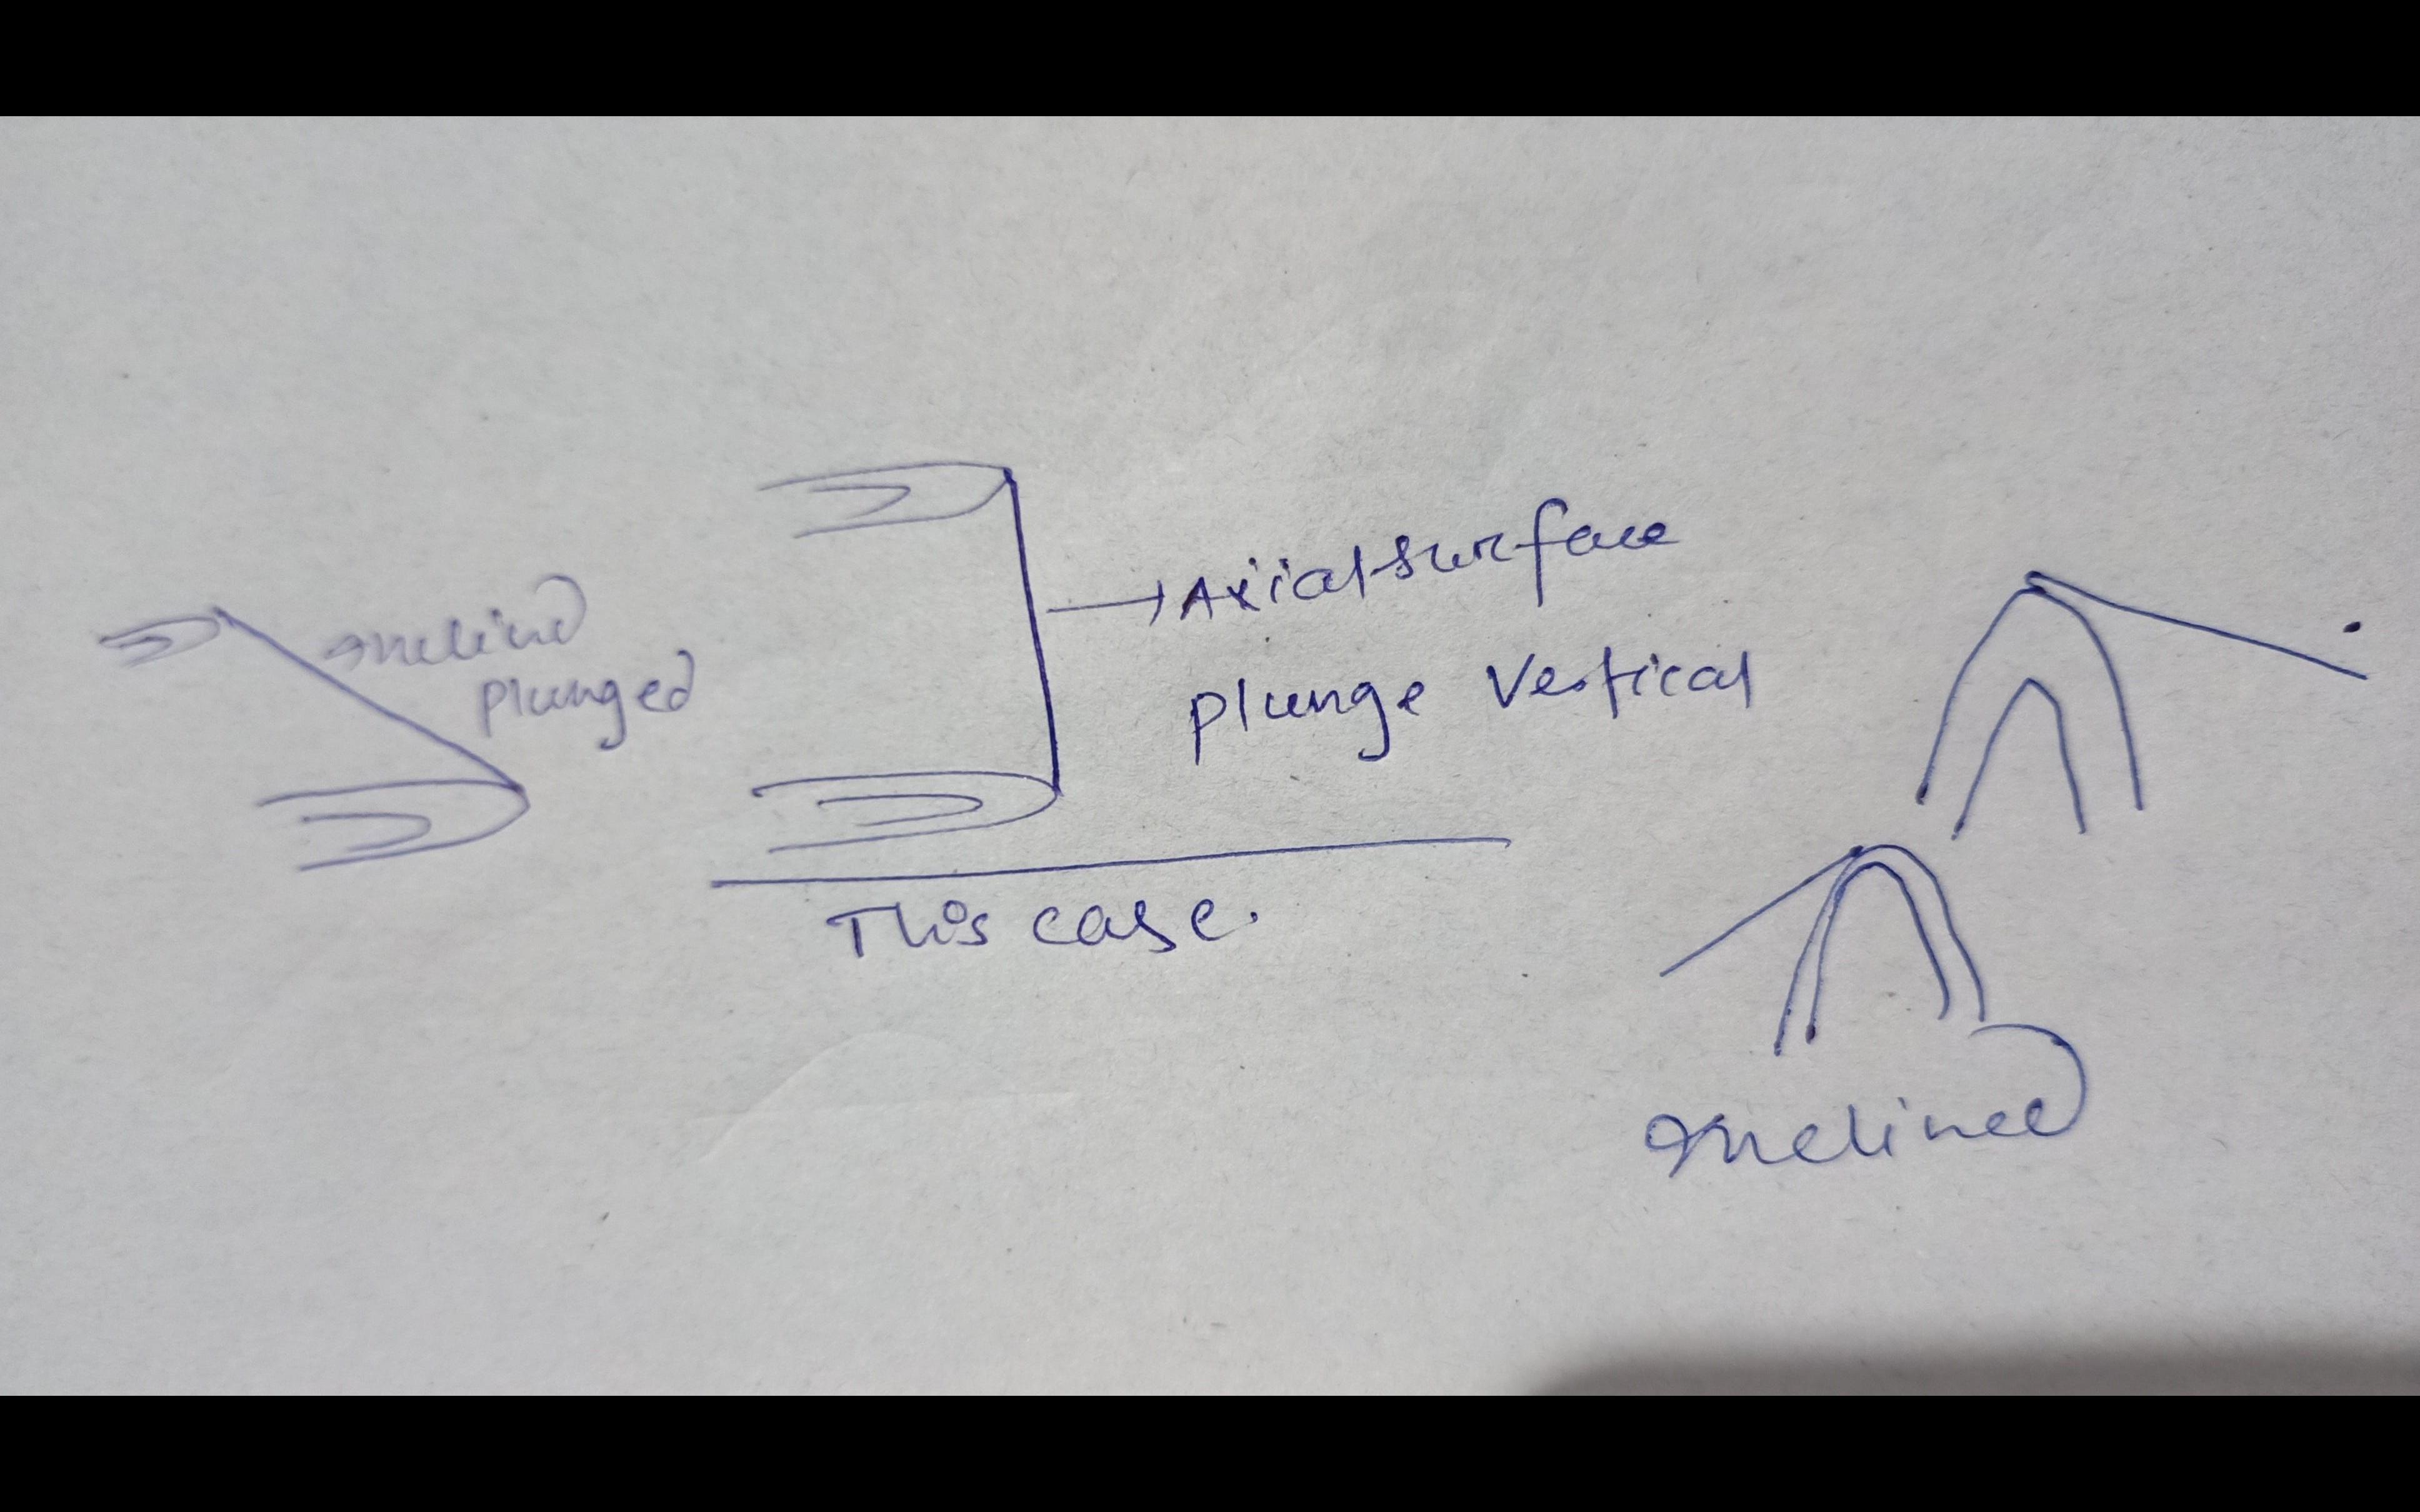 Inclined
plunged
Axial surface
plunge vertical
This case.
Inclined